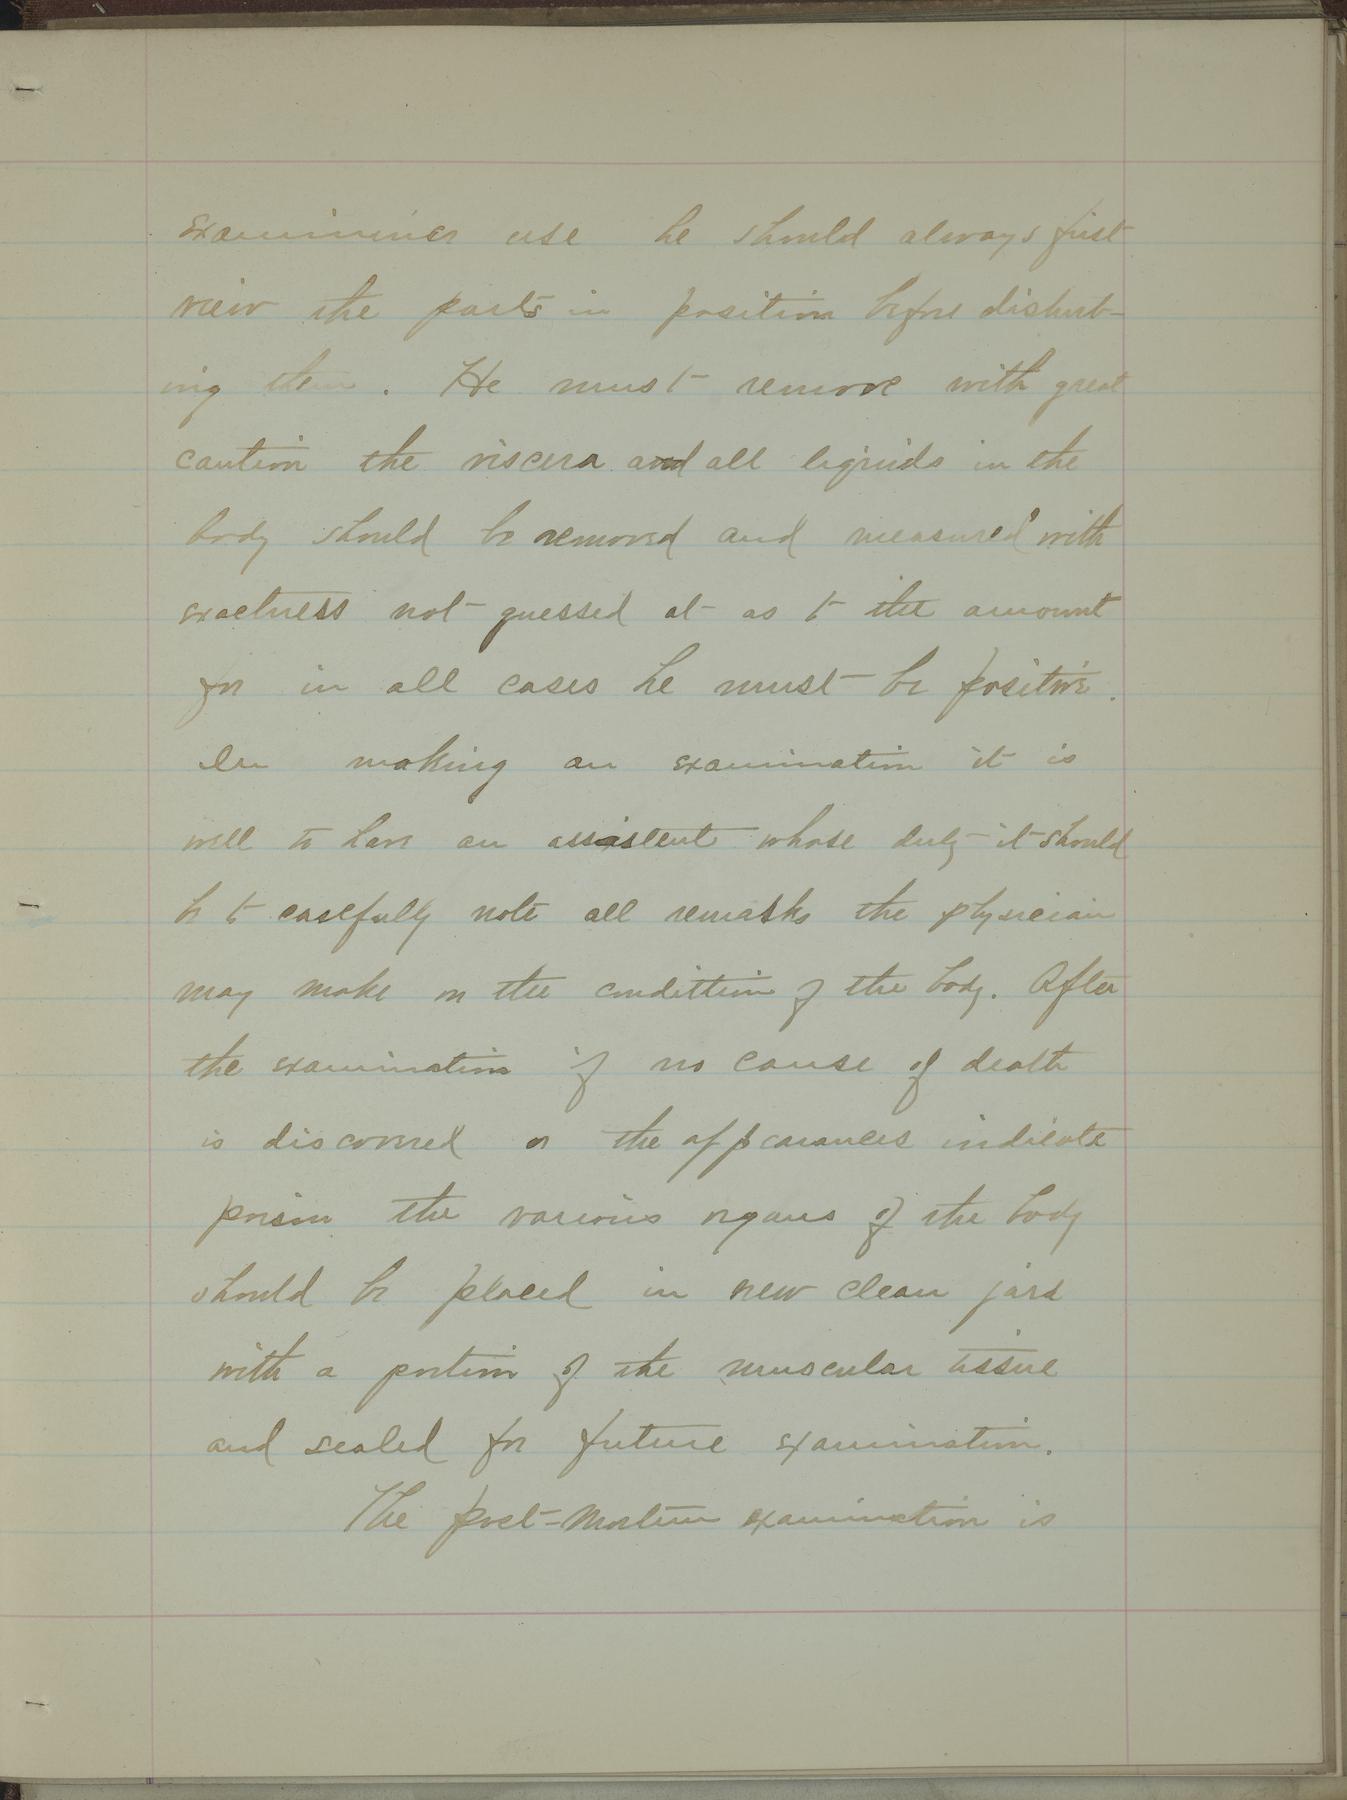 examiner use he should always first
view the parts in position before disturb-
ing them. He must remove with great
caution the viscera and all liquids in the
body should be removed and measured with
exactness not guessed at as to the amount
for in all cases he must be positive.
In making an examination it is
well to have an assistent whose duty it should
be to carefully note all remarks the physician
may make on the condittion of the body. After
the examination if no cause of death
is discovered or the appearances indicate
poison the various organs of the body
should be placed in new clean jars
with a portion of the muscular tissue
and sealed for future examination.
The post-mortem examination is